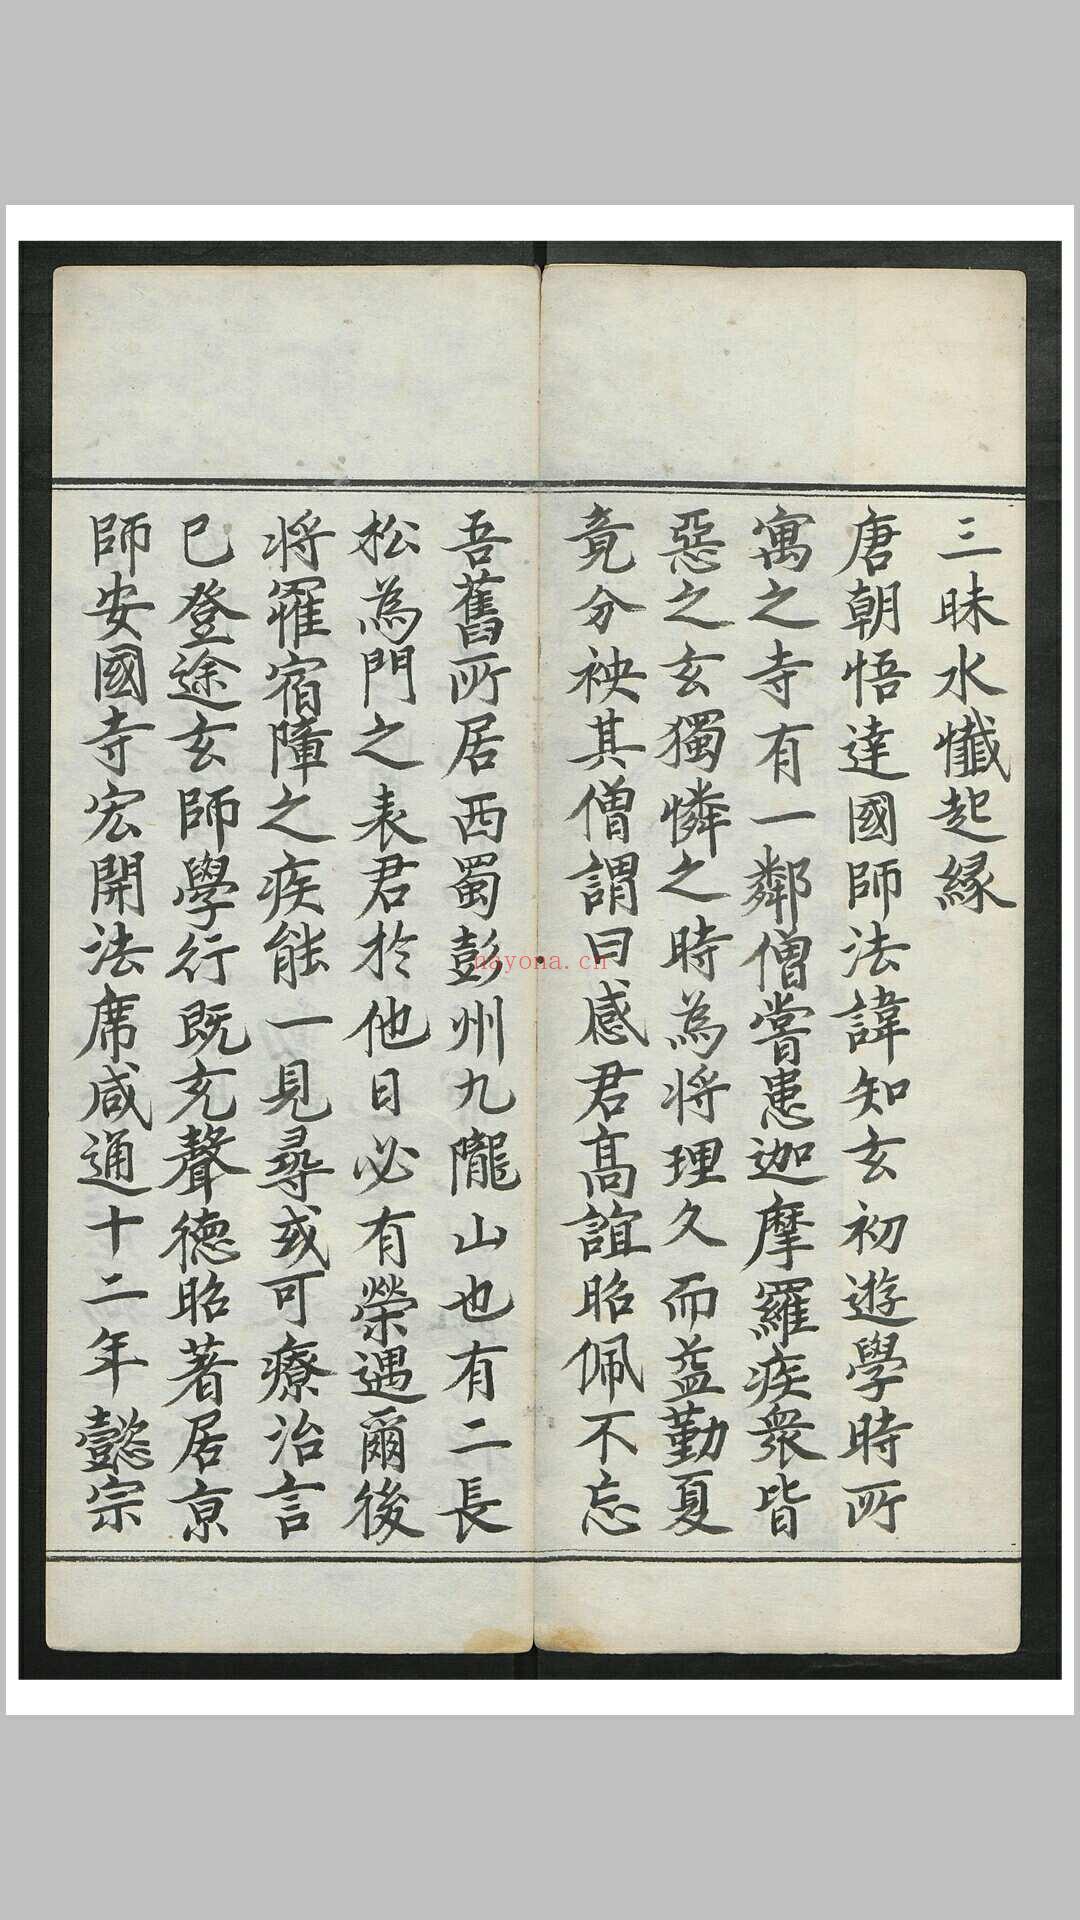 三昧水懺起緣
唐朝悟達國師法諱知玄初遊學時所
寓之寺有一鄰僧嘗患迦摩羅疾衆皆
惡之玄獨憐之時為將理久而益勤夏
竟分袂其僧謂曰感君高誼昭佩不忘
吾舊所居西蜀彭州九隴山也有二長
松為門之表君於他日必有榮遇爾後
將罹宿障之疾能一見尋或可療治言
已登途玄師學行既充聲德昭著居京
師安國寺宏開法席咸通十二年懿宗
nayona.cn